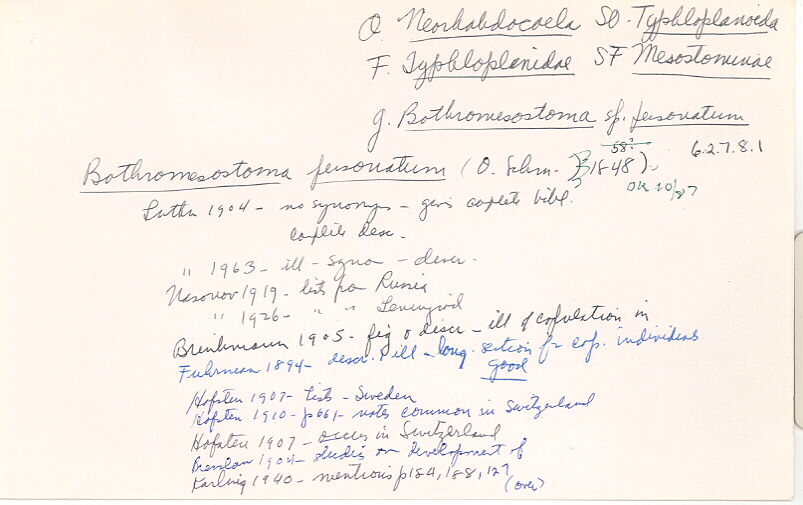 O. Neorhabdocoela SO. Typhloplanoida
F. Typhloplanidae SF Mesostominae
g. Bothromesostoma sp. personatum
58? 6.2.7.8.1
Bothromesostoma personatum (O. Schm. 1848).
OK 10/87
Luther 1904 - no synonyms - gives complete bibl.
complete desc.
" 1963 - ill - synon - descr.
Nasonov 1919 - lists for Russia
" 1926 - " " Leningrad
Brinkmann 1905 - fig & descr - ill of copulation in
Fuhrman 1894 - descr. & ill - long. section for cop. individuals
good
Hofsten 1907 - lists - Sweden
Hofsten 1910 - p661 - notes common in Switzerland
Hofsten 1907 - occurs in Switzerland
Bresslau 1904 - studies on development of
Karling 1940 - mentions p184, 188, 127
(over)